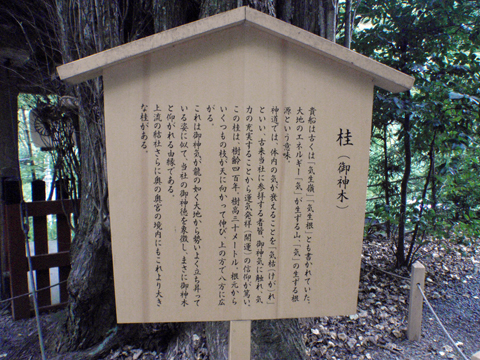 桂（御神木）
貴船は古くは「気生嶺」「気生根」とも書かれていた。
大地のエネルギー「気」が生ずる山、「気」の生ずる根
源という意味。
神道では、体内の気が衰えることを「気枯（けがれ）」
といい、古来当社に参拝する者皆、御神気に触れ、気
力の充実することから運気発祥（開運）の信仰が篤い。
この桂は、樹齢四百年、樹高三十メートル、根元から
いくつもの枝が天に向かって伸び、上の方で八方に広
がる。
これは御神気が龍の如く大地から勢いよく立ち昇って
いる姿に似て、当社の御神徳を象徴し、まさに御神木
と仰がれる由縁である。
上流の結社さらに奥の奥宮の境内にもこれより大き
な桂がある。